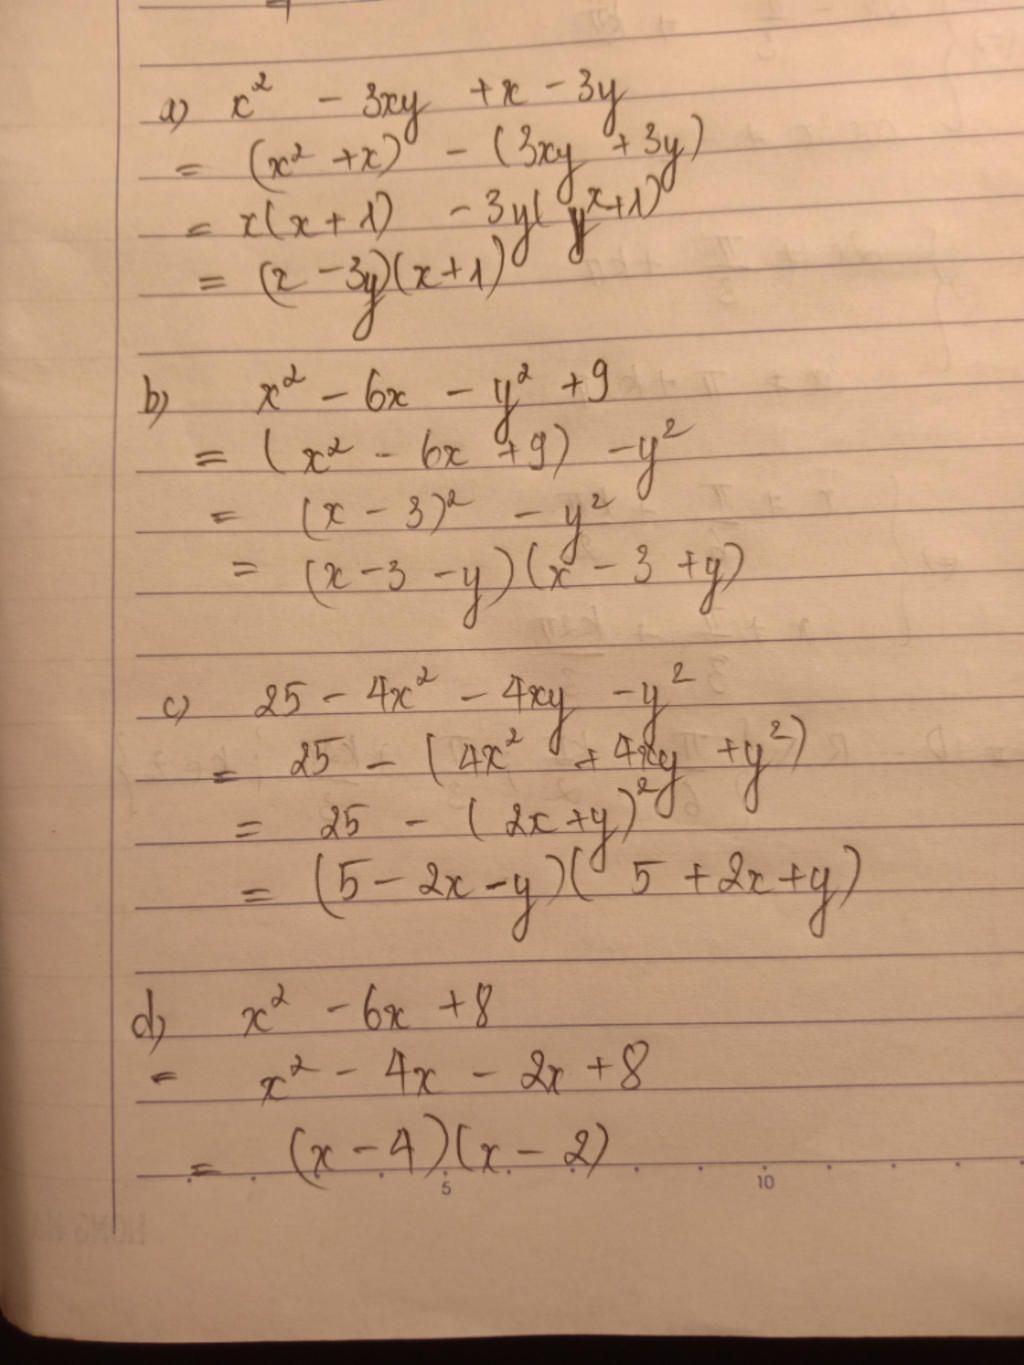 a) x² - 3xy + x - 3y
= (x² + x) - (3xy + 3y)
= x(x + 1) - 3y(x+1)
= (x - 3y)(x+1)
b) x² - 6x - y² + 9
= (x² - 6x + 9) - y²
= (x - 3)² - y²
= (x - 3 - y)(x - 3 + y)
c) 25 - 4x² - 4xy - y²
= 25 - (4x² + 4xy + y²)
= 25 - (2x + y)²
= (5 - 2x - y)(5 + 2x + y)
d) x² - 6x + 8
= x² - 4x - 2x + 8
= (x - 4)(x - 2)
5 10